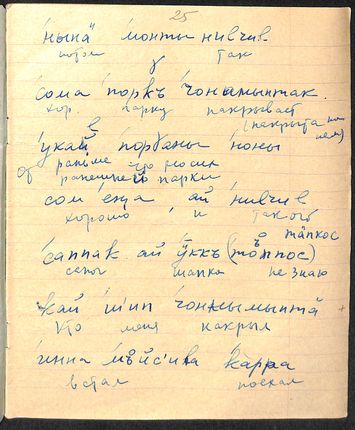 25
ныпӓ монты нивчив
потом так
сома порӄъ чонамыптак.
хор. парку накрывает
(накрыта на нем)
укай порӄаны ноны
раньше что носил
от ранешней парки
сом еӈа ай нивчив
хорошо и такой
тӓпкос
саппак ай ӱккъ (тъ̊мпос)
сапог шапка не знаю
кай шип чонжымыптӓ
кто меня накрыл
инна мъйс'ива карра
встал поехал